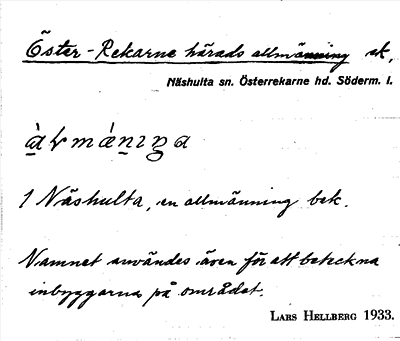 Öster-Rekarne härads allmänning sk,
Näshulta sn. Österrekarne hd. Söderm. l.
1 Näshulta, en allmänning bek.
Namnet användes även för att beteckna
inbyggarna på området.
LARS HELLBERG 1933.